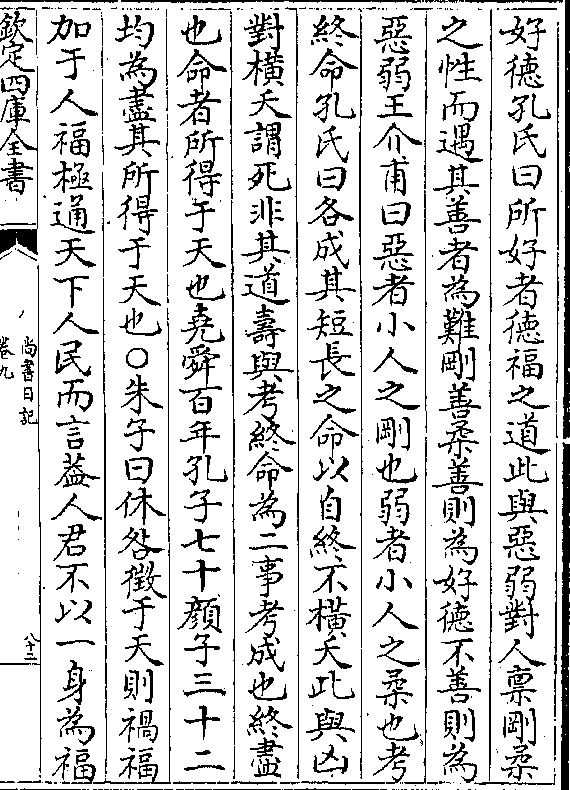 好德孔氏曰所好者德福之道此與惡弱對人禀剛柔
之性而遇其善者為難剛善柔善則為好德不善則為
惡弱王介甫曰惡者小人之剛也弱者小人之柔也考
終命孔氏曰各成其短長之命以自終不橫夭此與凶
對橫夭謂死非其道壽與考終命為二事考成也終盡
也命者所得于天也堯舜百年孔子七十顔子三十二
均為盡其所得于天也○朱子曰休咎徵于天則禍福
加于人福極通天下人民而言葢人君不以一身為福
欽定四庫全書
尚書日記
卷九
八十二